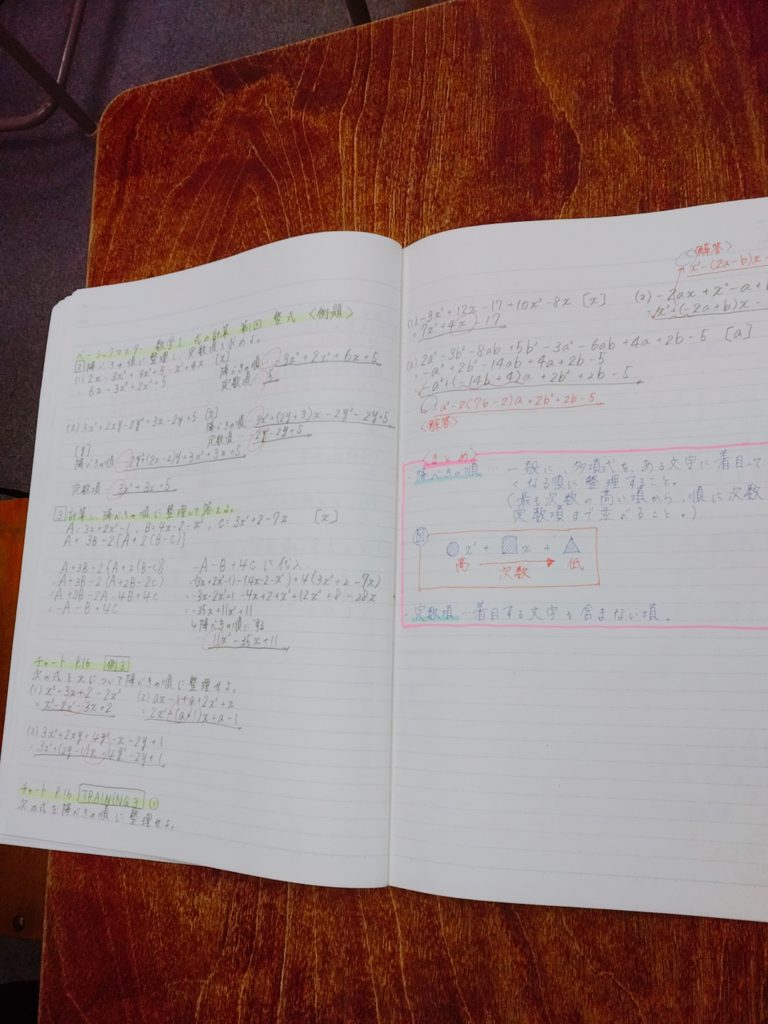 ベーシックマスター 数学Ⅰ 式の計算 第1回 整式 〈例題〉
2 降べきの順に整理し、定数項を求めよ。
降べきの順 3x²+2y²
[x]
定数項 5
(2) 3x²+2xy-2y²+3x-2y+5 [x]
降べきの順 3x²+(2y+3)x-2y²-2y+5
定数項 -2y²-2y+5
[y]
降べきの順 -2y²+(2x-2)y+3x²+3x+5
定数項 3x²+3x+5
3 計算し、降べきの順に整理して答えよ。
A=3x+2x²-1, B=4x-2-x², C=3x²+2-7x [x]
A+3B-2{A+2(B-C)}
A+3B-2{A+2(B-C)}
=A+3B-2(A+2B-2C)
=A+3B-2A-4B+4C
=-A-B+4C
-A-B+4Cに代入
=-(3x+2x²-1)-(4x-2-x²)+4(3x²+2-7x)
=-3x-2x²+1-4x+2+x²+12x²+8-28x
=-35x+11x²+11
↳降べきの順にする
11x²-35x+11
チャート P.16 例3
次の式をxについて降べきの順に整理せよ。
(2) ax-1+a+2x²+x
=2x²+(a+1)x+a-1
(3) 3x²+2xy+4y²-x-2y+1
=3x²+(2y-1)x+4y²-2y+1
チャート P.16 TRAINING 3 ①
次の式を降べきの順に整理せよ。
〈解答〉
x²-(2a-b)x-
(1) -3x²+12x-17+10x²-8x [x]
=7x²+4x-17
(2) -2ax+x²-a+b
=x²+(-2a+b)x-
(3) 2a²-3b²-8ab+5b²-3a²-6ab+4a+2b-5 [a]
=-a²+2b²-14ab+4a+2b-5
=-a²+(-14b+4)a+2b²+2b-5
-a²-2(7b-2)a+2b²+2b-5
〈解答〉
〈まとめ〉
降べきの順…一般に、多項式を、ある文字に着目して
くなる順に整理すること。
(最も次数の高い項から、順に次数
定数項まで並べること。)
例
x²+ x +
高 次数 低
・定数項…着目する文字を含まない項。